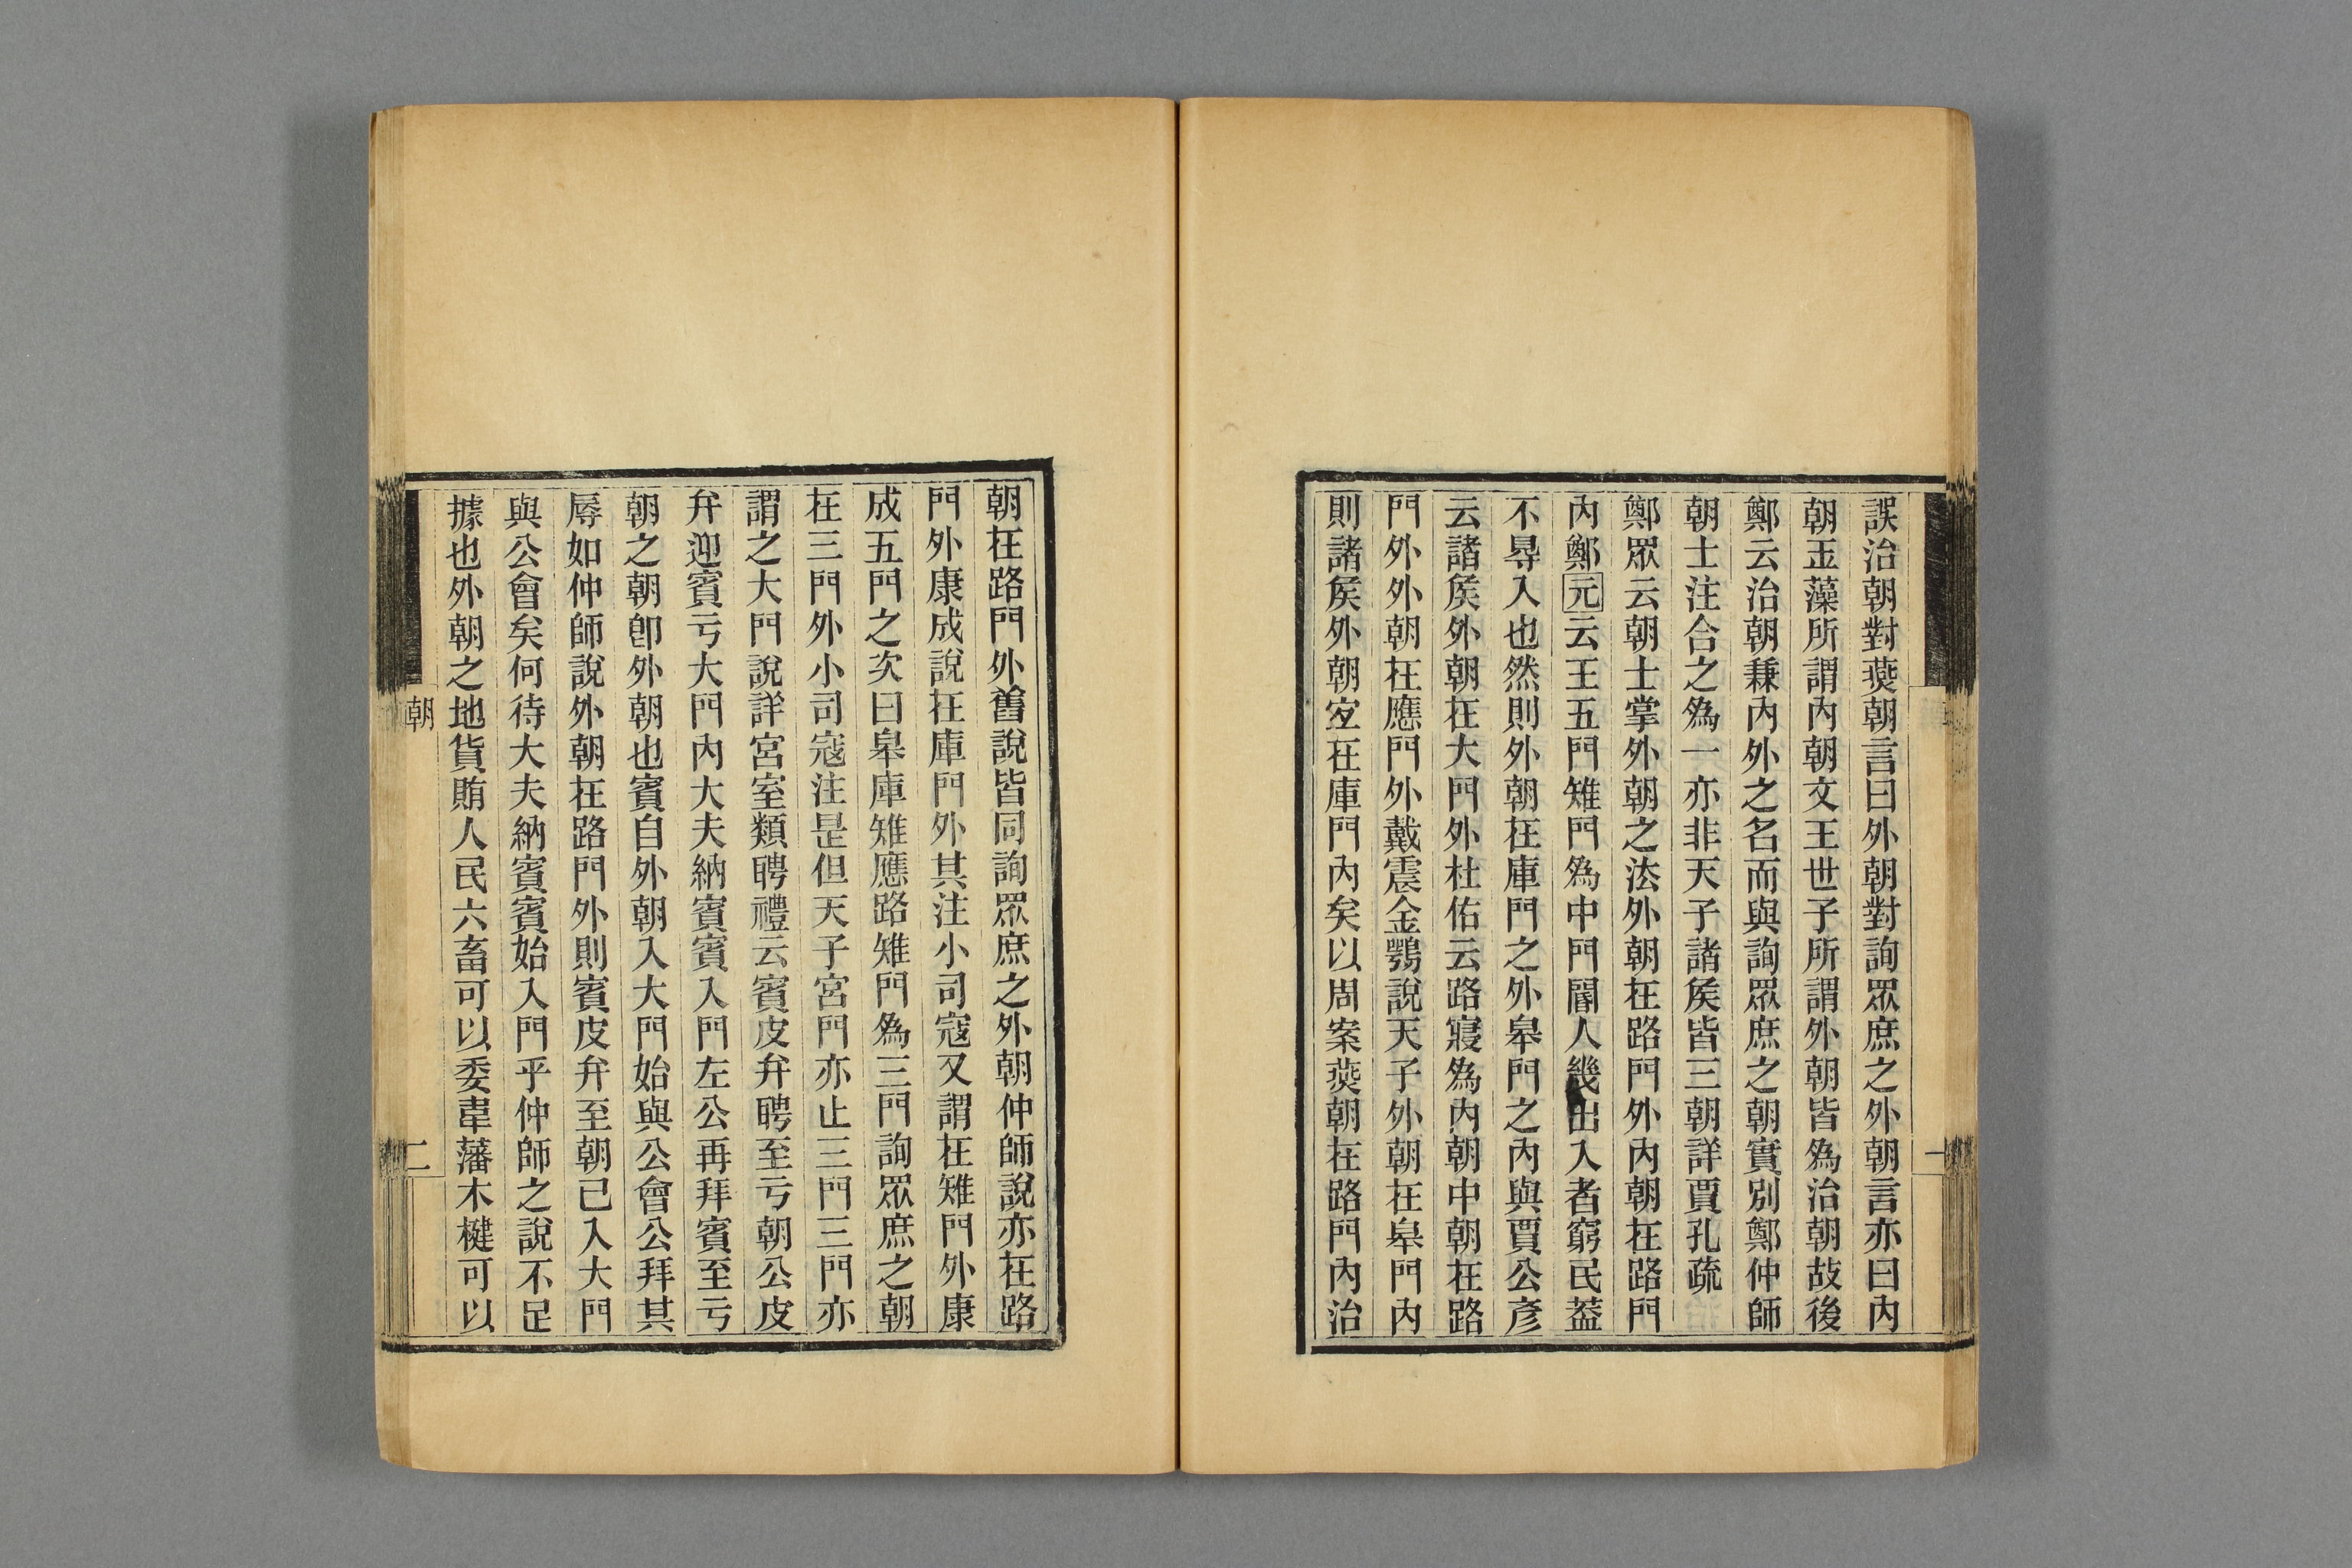 誤治朝對燕朝言曰外朝對詢眾庶之外朝言亦曰內
朝玉藻所謂內朝文王世子所謂外朝皆為治朝故後
鄭云治朝兼內外之名而與詢眾庶之朝實別鄭仲師
朝士注合之為一亦非天子諸矦皆三朝詳賈孔疏
鄭眾云朝士掌外朝之法外朝在路門外內朝在路門
內鄭元云王五門雉門為中門閽人幾出入者窮民葢
不㝵入也然則外朝在庫門之外皋門之內與賈公彥
云諸矦外朝在大門外杜佑云路寢為內朝中朝在路
門外外朝在應門外戴震金鶚說天子外朝在皋門內
則諸矦外朝宐在庫門內矣以周案燕朝在路門內治
一
朝在路門外舊說皆同詢眾庶之外朝仲師說亦在路
門外康成說在庫門外其注小司寇又謂在雉門外康
成五門之次曰皋庫雉應路雉門為三門詢眾庶之朝
在三門外小司寇注是但天子宮門亦止三門三門亦
謂之大門說詳宮室類聘禮云賓皮弁聘至亏朝公皮
弁迎賓亏大門內大夫納賓賓入門左公再拜賓至亏
朝之朝卽外朝也賓自外朝入大門始與公會公拜其
辱如仲師說外朝在路門外則賓皮弁至朝已入大門
與公會矣何待大夫納賓賓始入門乎仲師之說不足
據也外朝之地貨賄人民六畜可以委韋藩木楗可以
朝
二